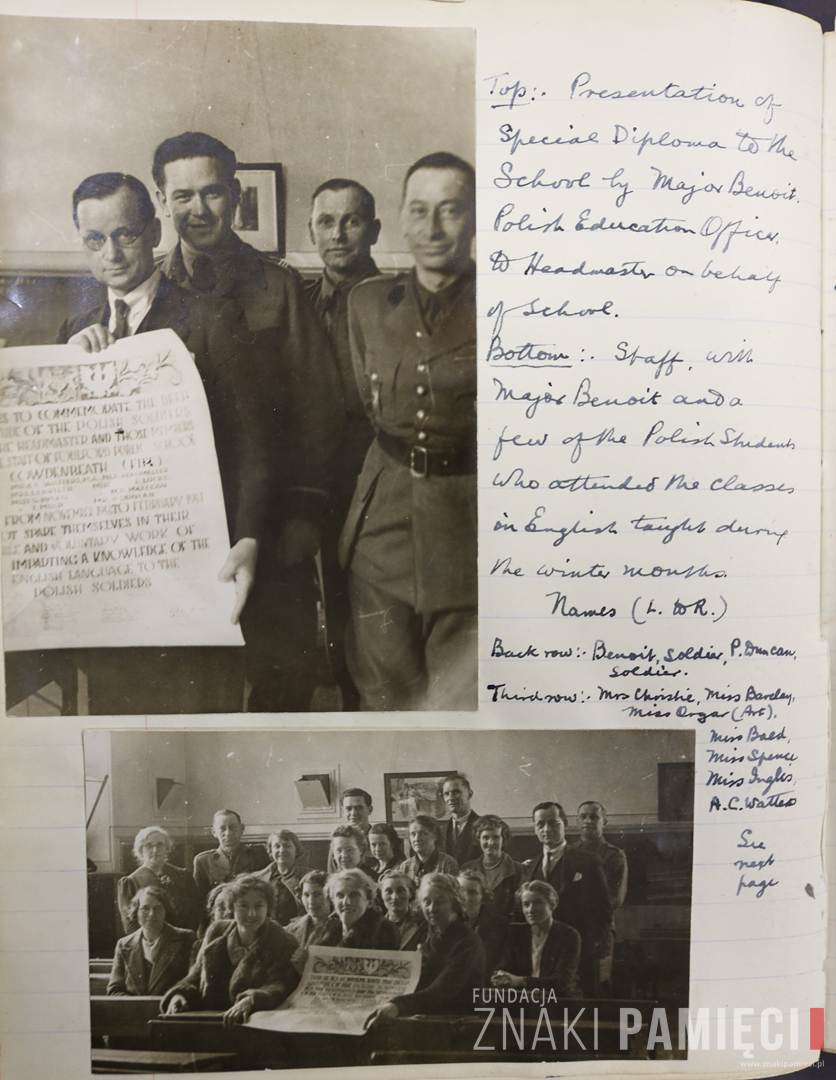 Top:. Presentation of
Special Diploma to the
School by Major Benoit,
Polish Education Officer,
to Headmaster on behalf
of School.
Bottom:. Staff, with
Major Benoit and a
few of the Polish Students
who attended the classes
in English taught during
the winter months.
Names (L. to R.)
Back row:- Benoit, Soldier, P. Duncan,
Soldier.
Third row:- Mrs Christie, Miss Barclay,
Miss Orgar (Art),
Miss Bald,
Miss Spence
Miss Inglis,
A.C. Watters
See
next
page
IS TO COMMEMORATE THE DEEP
OF THE POLISH SOLDIERS
HEADMASTER AND THOSE MEMBERS
STAFF OF FOULFORD PUBLIC SCHOOL
COWDENBEATH (FIFE)
FROM NOVEMBER TO FEBRUARY 1941
SPARE THEMSELVES IN THEIR
AND VOLUNTARY WORK OF
IMPARTING A KNOWLEDGE OF THE
ENGLISH LANGUAGE TO THE
POLISH SOLDIERS
FUNDACJA
ZNAKI PAMIĘCI
www.znakipamieci.pl